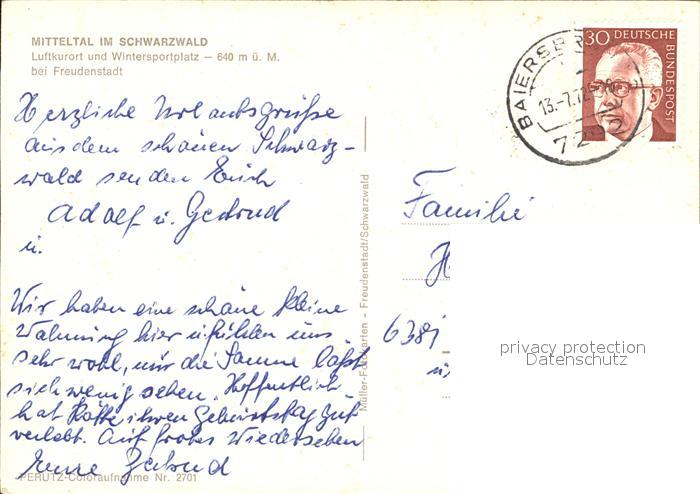 MITTELTAL IM SCHWARZWALD
Luftkurort und Wintersportplatz – 640 m ü. M.
bei Freudenstadt
Herzliche Urlaubsgrüße
aus dem schönen Schwarz-
wald senden Euch
Adolf u. Gertrud
u.
Wir haben eine schöne kleine
Wohnung hier u. fühlen uns
sehr wohl, nur die Sonne läßt
sich wenig sehen. Hoffentlich
hat ihren Geburtstag gut
verlebt. Auf frohes Wiedersehen
Eure Gertrud
PERUTZ-Coloraufnahme Nr. 2701
Müller-Fotokarten - Freudenstadt/Schwarzwald
BAIERSBR
13.-7.72
7292
30 DEUTSCHE
BUNDESPOST
Familie
H
638
privacy protection
Datenschutz